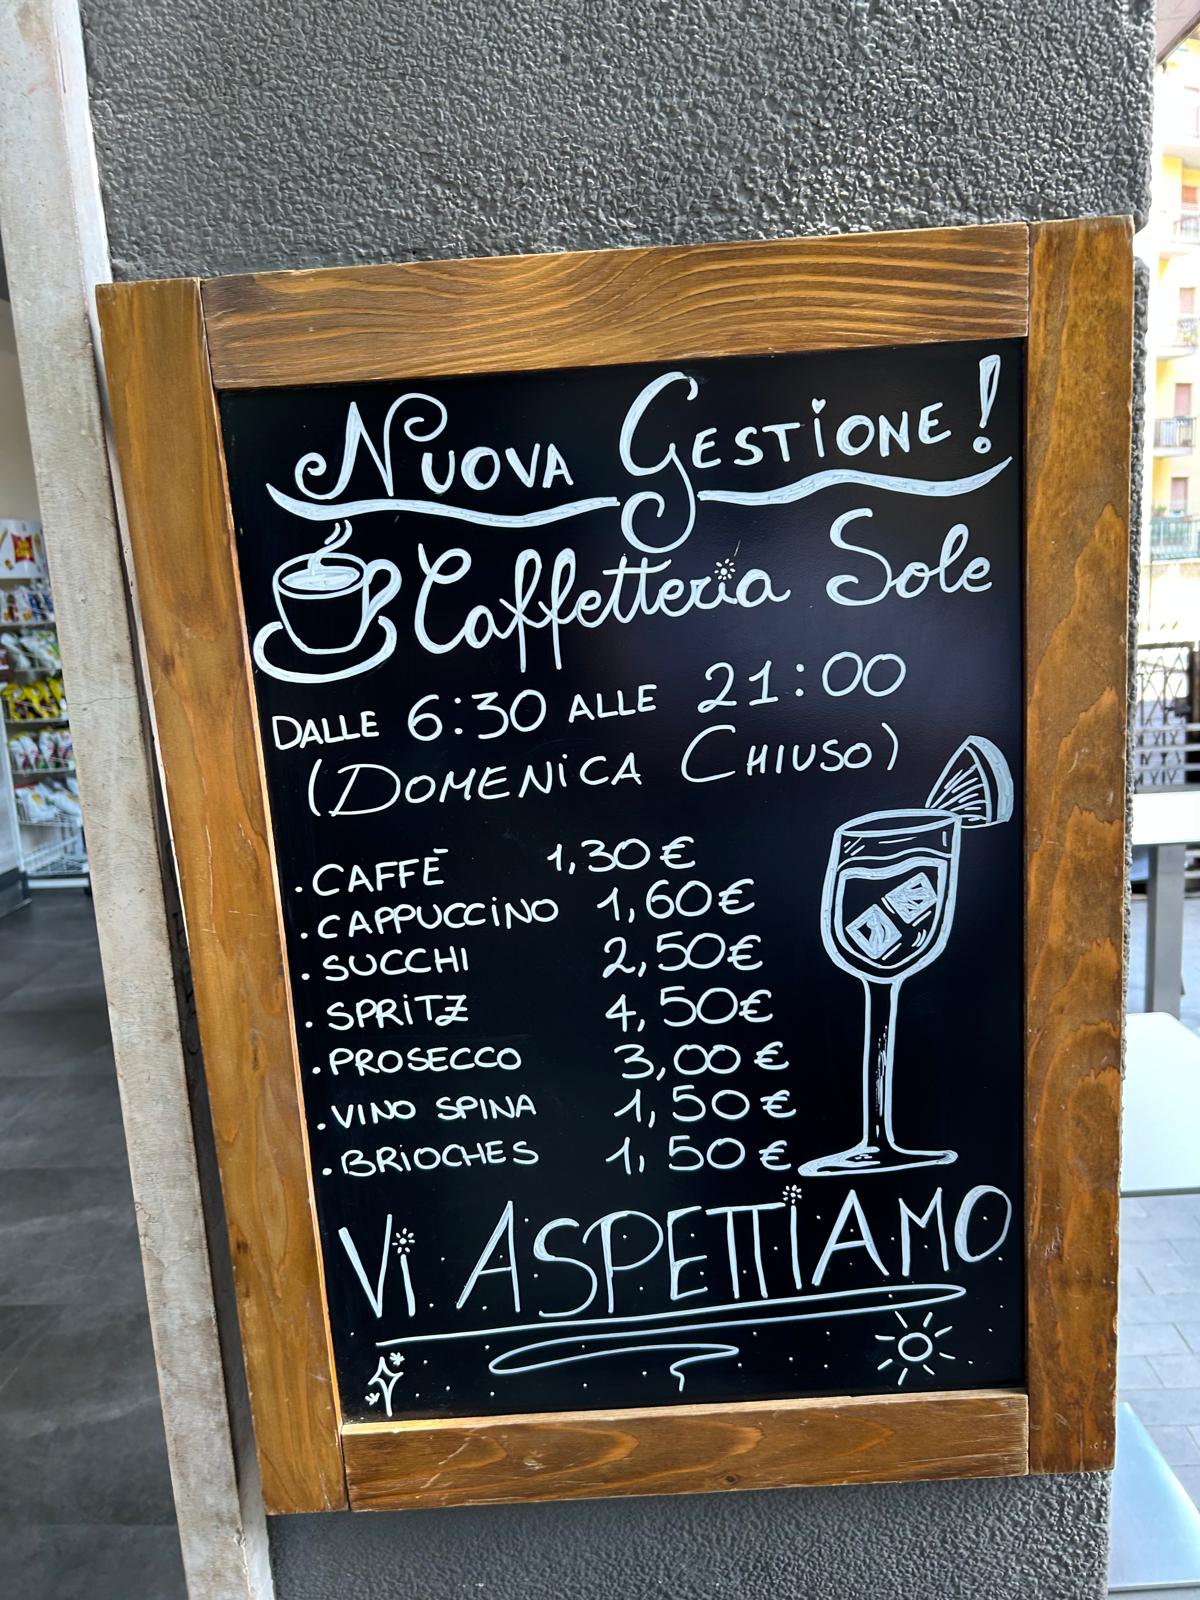 NUOVA GESTIONE!
Caffetteria Sole
DALLE 6:30 ALLE 21:00
(DOMENICA CHIUSO)
. CAFFÈ 1,30 €
. CAPPUCCINO 1,60 €
. SUCCHI 2,50 €
. SPRITZ 4,50 €
. PROSECCO 3,00 €
. VINO SPINA 1,50 €
. BRIOCHES 1,50 €
Vi ASPETTIAMO